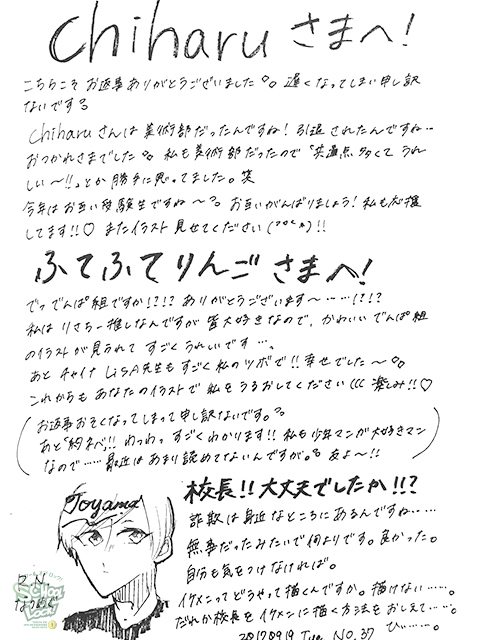 chiharu さまへ!
こちらこそ お返事ありがとうございました°。 遅くなってしまい申し訳
ないです
chiharuさんは 美術部だったんですね! 引退 されたんですね…
おつかれさまでした°。 私も美術部だったので「共通点 多くて うれ
しい〜!!」とか 勝手に思ってました。笑
今年は お互い 受験生ですね〜°。 お互いがんばりましょう! 私も応援
してます!!♡ またイラスト 見せてください
ふてふてりんご さまへ!
でっ でんぱ組ですか!?!? ありがとうございます〜……!?!?
私は りさちー推しなんですが 皆大好きなので、かわいい でんぱ組
のイラストが見られて すごくうれしいです…、
あと チャイナ LiSA先生も すごく 私のツボで!! 幸せでした〜°。
これからも あなたのイラストで 私を うるおしてください 楽しみ!!♡
お返事おそくなってしまって申し訳ないです。°。
あと すごくわかります!! 私も少年マンガ大好きマン
なので…… 最近は あまり読めてないんですが。 友よ〜!!
校長!! 大丈夫でしたか!!?
詐欺は 身近なところに あるんですね……
無事だったみたいで 何よりです。良かった。
自分も 気をつけなければ。
イケメンって どうやって 描くんですか。描けない……。
だれか校長を イケメンに描く方法を おしえて……。
び……。
Toyama
R.N
SCHOOL OF LOCK!
20170919 Tue. NO.37